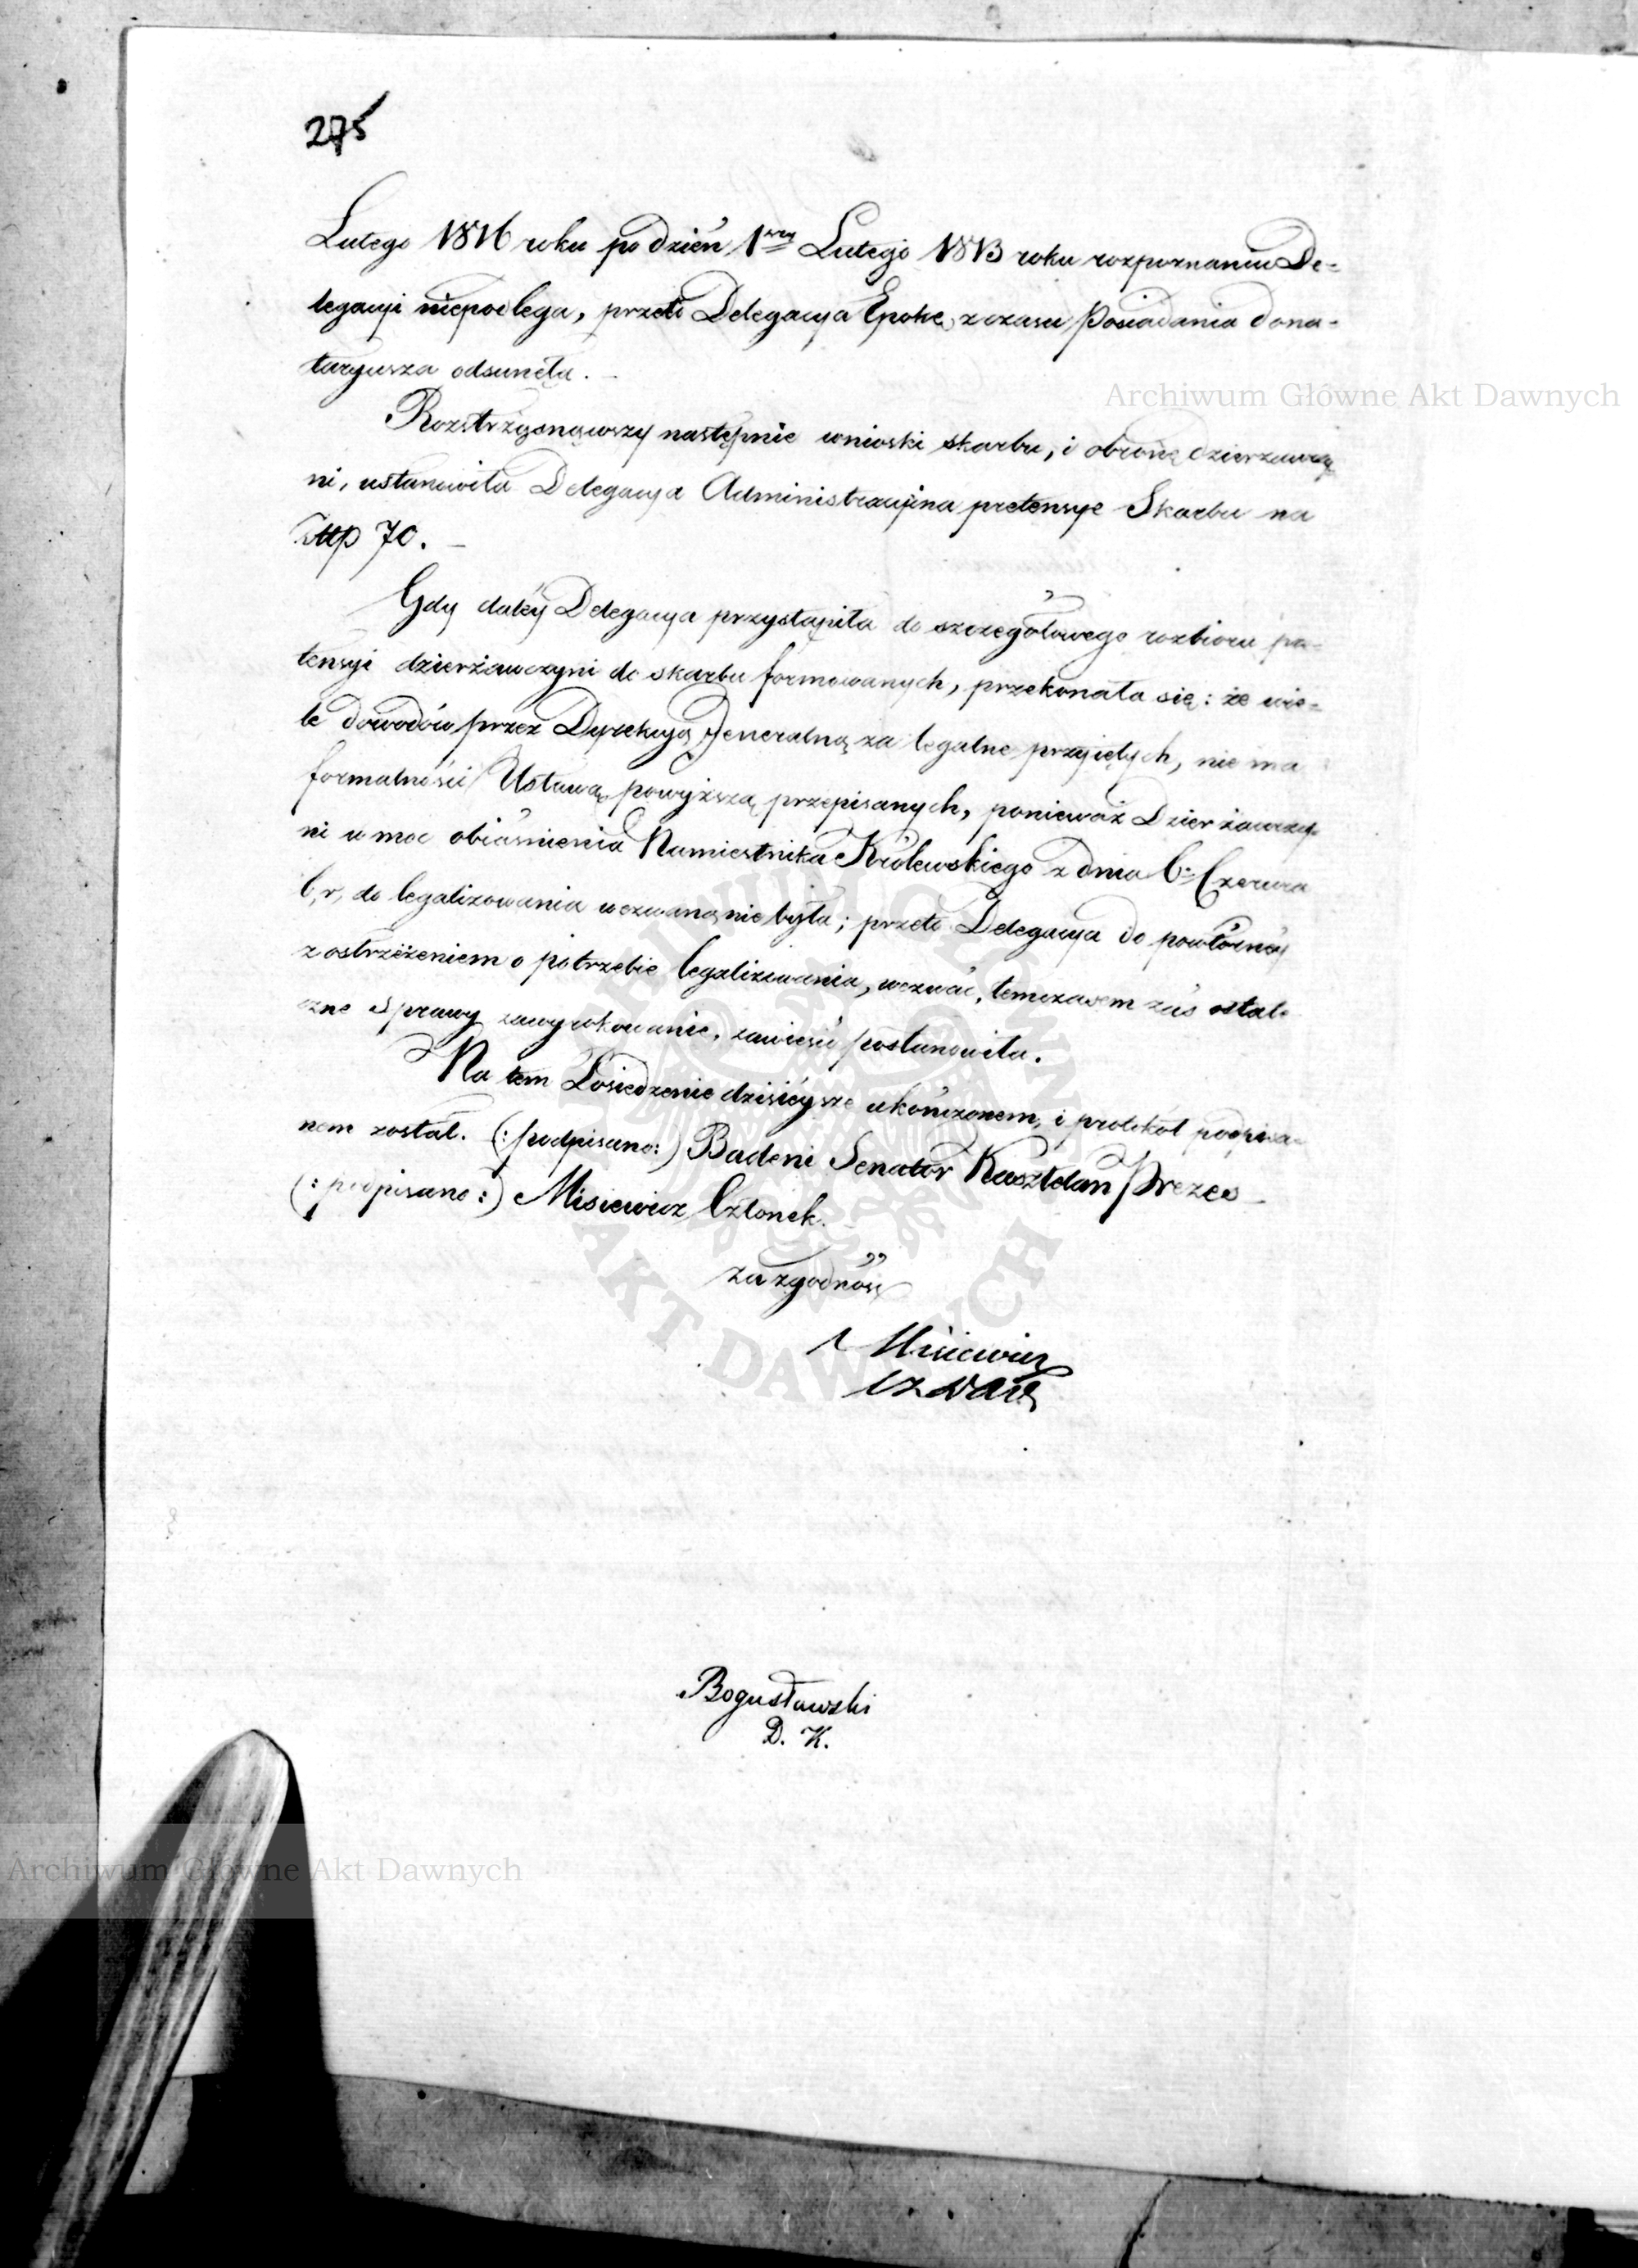 275
Lutego 1816 roku po dzień 1wszy Lutego 1813 roku rozpoznaniu De-
legacyi niepodlega, przeto Delegacya Epokę z czasu Posiadania dona-
taryusza odsunęła. –
Rozstrzygnąwszy następnie wnioski skarbu, i obronę dzierzawczy
ni, ustanowiła Delegacya Administracyina pretensye Skarbu na
Złtp 70. –
Gdy daléy Delegacya przystąpiła do szczegółowego rozbioru pre-
tensyi dzierżawczyni do skarbu formowanych, przekonała się: że wie-
le dowodów przez Dyrekcyą Jeneralną za legalne przyiętych, nie ma
formalności Ustawą powyższą przepisanych, ponieważ Dzierżawczy-
ni w moc obiaśnienia Namiestnika Królewskiego z dnia 6o Czerwca
b, r, do legalizowania wezwaną nie była; przeto Delegacya do powtórnéy
z ostrzeżeniem o potrzebie legalizowania, wezwać, tymczasem zaś ostate
czne Sprawy zawyrokowanie, zawiesić postanowiła.
Na tem Posiedzenie dzisieysze ukończonem, i protokół podpisa-
nem został. (: podpisano:) Badeni Senator Kasztelan Prezes –
(: podpisano:) Misiewicz Członek.
za zgodność
Misiewicz
Bogusławski
D. K.
Archiwum Główne Akt Dawnych
Archiwum Główne Akt Dawnych
ARCHIWUM GŁÓWNE
AKT DAWNYCH